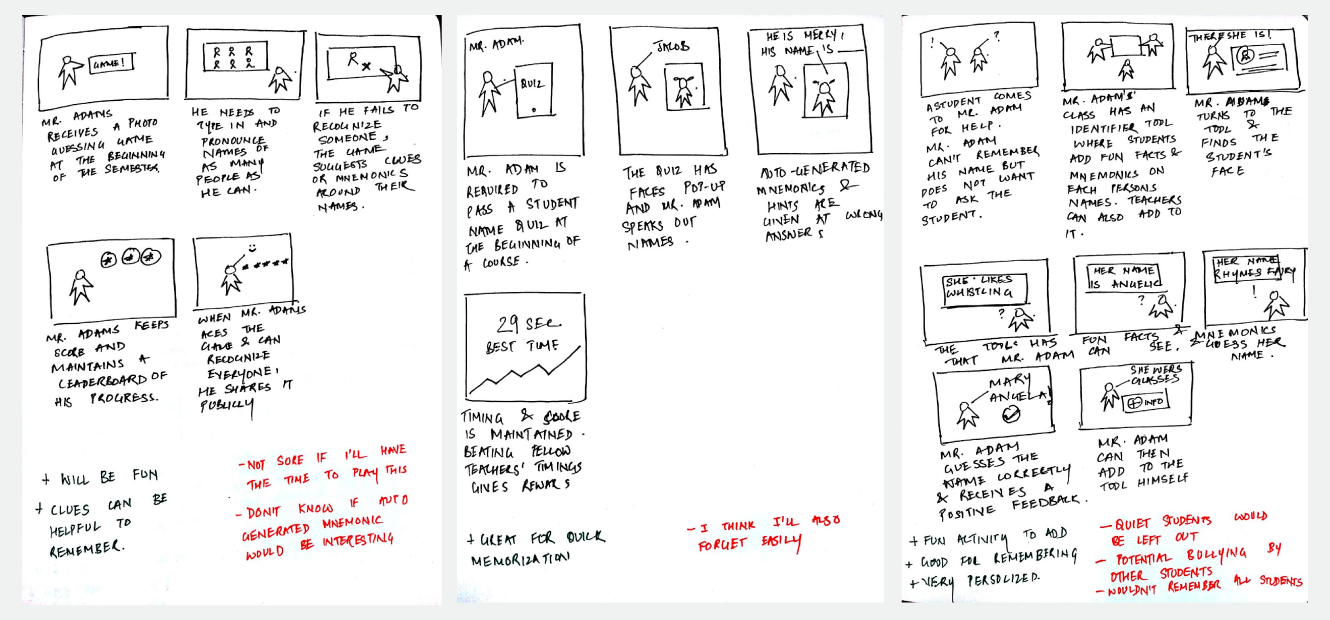 GAME!
MR. ADAMS
RECEIVES A PHOTO
GUESSING GAME
AT THE BEGINNING
OF THE SEMESTER.
HE NEEDS TO
TYPE IN AND
PRONOUNCE
NAMES OF
AS MANY
PEOPLE AS
HE CAN.
IF HE FAILS TO
RECOGNIZE
SOMEONE,
THE GAME
SUGGESTS CLUES
OR MNEMONICS
AROUND THEIR
NAMES.
MR. ADAMS KEEPS
SCORE AND
MAINTAINS A
LEADERBOARD OF
HIS PROGRESS.
WHEN MR. ADAMS
ACES THE
GAME & CAN
RECOGNIZE
EVERYONE,
HE SHARES IT
PUBLICLY
+ WILL BE FUN
+ CLUES CAN BE
HELPFUL TO
REMEMBER.
- NOT SURE IF I'LL HAVE
THE TIME TO PLAY THIS
- DON'T KNOW IF AUTO
GENERATED MNEMONIC
WOULD BE INTERESTING
MR. ADAM.
QUIZ
MR. ADAM IS
REQUIRED TO
PASS A STUDENT
NAME QUIZ AT
THE BEGINNING OF
A COURSE.
JACOB
THE QUIZ HAS
FACES POP-UP
AND MR. ADAM
SPEAKS OUT
NAMES.
HE IS MERRY,
HIS NAME IS ___
AUTO-GENERATED
MNEMONICS &
HINTS ARE
GIVEN AT WRONG
ANSWERS
29 SEC
BEST TIME
TIMING & SCORE
IS MAINTAINED.
BEATING FELLOW
TEACHERS' TIMINGS
GIVES REWARS
+ GREAT FOR QUICK
MEMORIZATION
- I THINK I'LL ALSO
FORGET EASILY
! ?
A STUDENT COMES
TO MR. ADAM
FOR HELP.
MR. ADAM
CAN'T REMEMBER
HIS NAME BUT
DOES NOT WANT
TO ASK THE
STUDENT.
MR. ADAM'S
CLASS HAS AN
IDENTIFIER TOOL
WHERE STUDENTS
ADD FUN FACTS &
MNEMONICS ON
EACH PERSONS
NAMES. TEACHERS
CAN ALSO ADD TO
IT.
THERE SHE IS!
MR. ADAMS
TURNS TO THE
TOOL &
FINDS THE
STUDENT'S
FACE
SHE LIKES
WHISTLING
?
HER NAME
IS ANGELIC
?
HER NAME
RHYMES FAIRY
!
THE TOOL HAS FUN FACTS & MNEMONICS
THAT MR. ADAM CAN SEE, & GUESS HER
NAME.
MARY
ANGELA!
MR. ADAM
GUESSES THE
NAME CORRECTLY
& RECEIVES A
POSITIVE FEEDBACK.
SHE WERS
GLASSES
+ INFO
MR. ADAM
CAN THEN
ADD TO THE
TOOL HIMSELF
+ FUN ACTIVITY TO ADD
+ GOOD FOR REMEMBERING
+ VERY PERSOLIZED.
- QUIET STUDENTS WOULD
BE LEFT OUT
- POTENTIAL BULLYING BY
OTHER STUDENTS
- WOULDN'T REMEMBER ALL STUDENTS